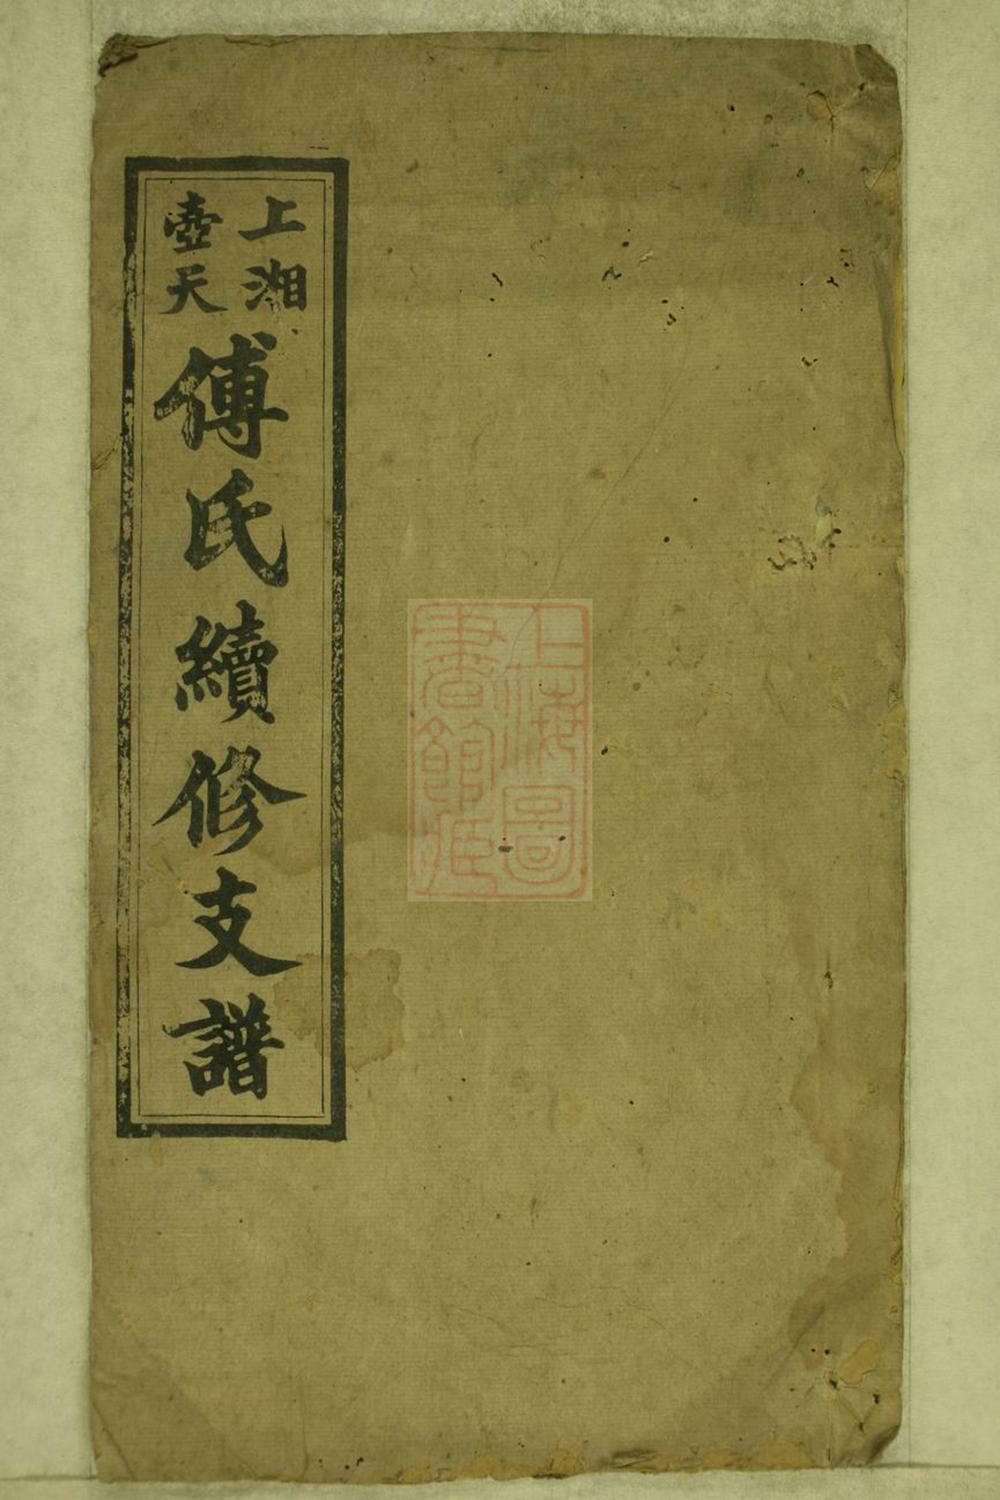 上湘
壺天
傅氏續修支譜
上海圖
書館藏